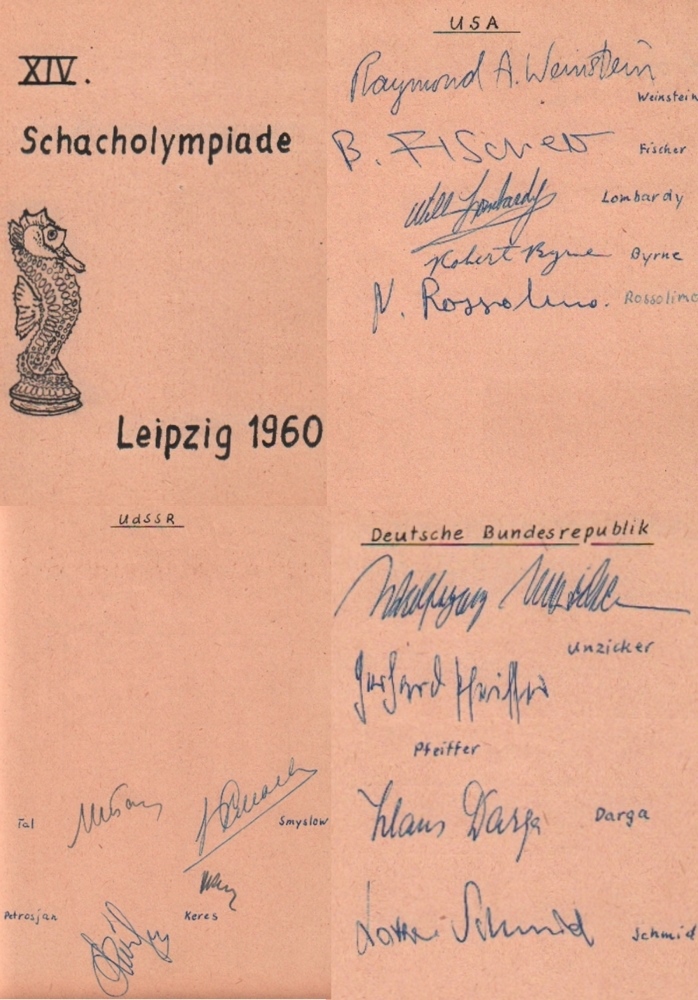 XIV.
Schacholympiade
Leipzig 1960
USA
Raymond A. Weinstein
Weinstein
B. FISCHER
Fischer
Will Lombardy
Lombardy
Robert Byrne
Byrne
N. Rossolimo.
Rossolimo
UdSSR
Tal
Smyslow
Petrosjan
Keres
Deutsche Bundesrepublik
Wolfgang Unzicker
Unzicker
Gerhard Pfeiffer
Pfeiffer
Klaus Darga
Darga
Lothar Schmid
Schmid